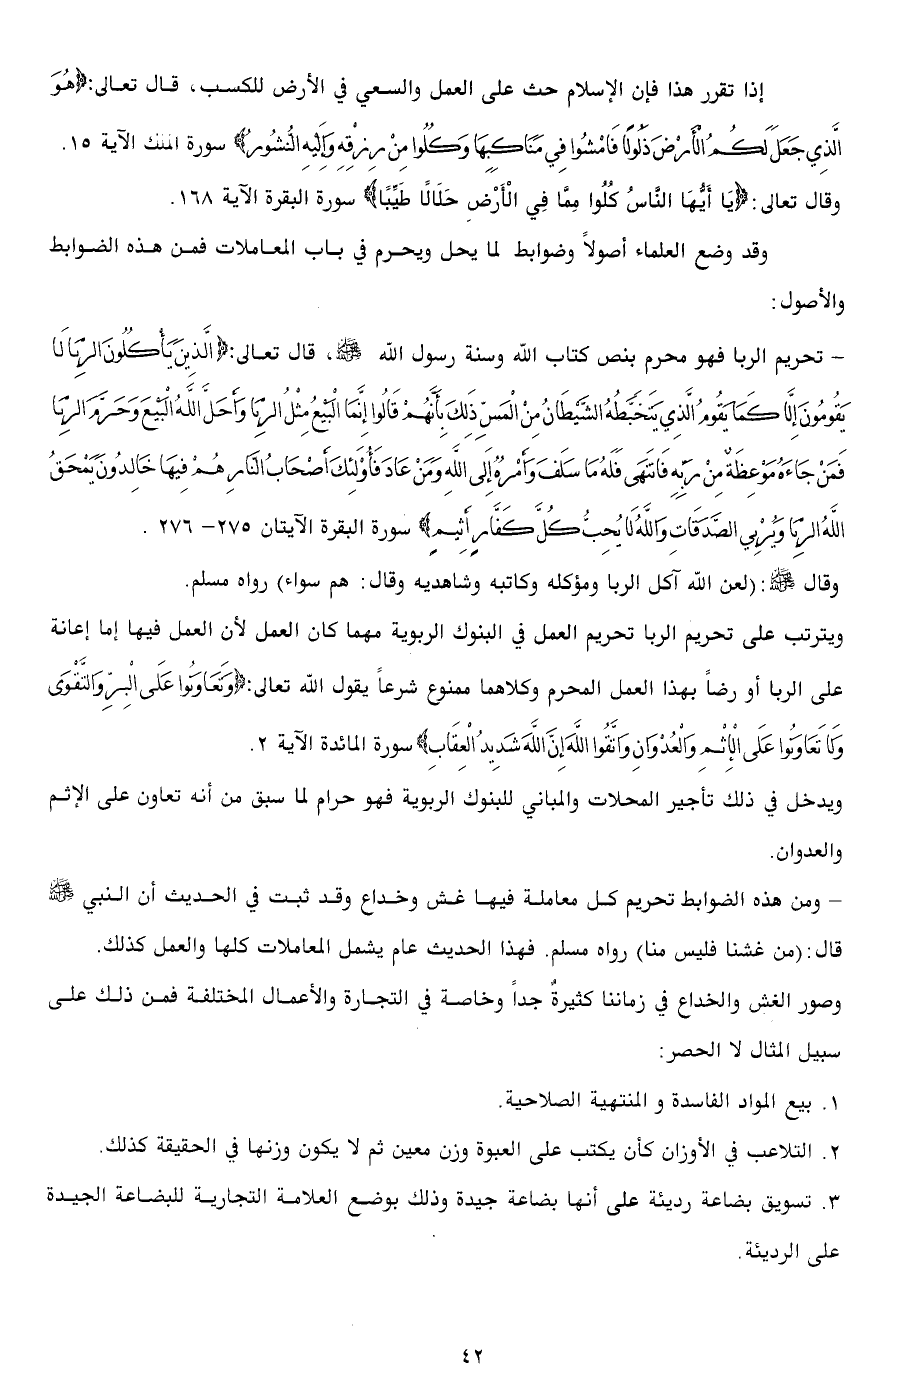 إذا تقرر هذا فإن الإسلام حث على العمل والسعي في الأرض للكسب، قال تعالى:﴿هُوَ
الَّذِي جَعَلَ لَكُمُ الْأَرْضَ ذَلُولًا فَامْشُوا فِي مَنَاكِبِهَا وَكُلُوا مِنْ رِزْقِهِ وَإِلَيْهِ النُّشُورُ﴾ سورة الملك الآية ١٥.
وقال تعالى:﴿يَا أَيُّهَا النَّاسُ كُلُوا مِمَّا فِي الْأَرْضِ حَلَالًا طَيِّبًا﴾ سورة البقرة الآية ١٦٨.
وقد وضع العلماء أصولاً وضوابط لما يحل ويحرم في باب المعاملات فمن هذه الضوابط
والأصول:
– تحريم الربا فهو محرم بنص كتاب الله وسنة رسول الله ﷺ، قال تعالى:﴿الَّذِينَ يَأْكُلُونَ الرِّبَا لَا
يَقُومُونَ إِلَّا كَمَا يَقُومُ الَّذِي يَتَخَبَّطُهُ الشَّيْطَانُ مِنْ الْمَسِّ ذَلِكَ بِأَنَّهُمْ قَالُوا إِنَّمَا الْبَيْعُ مِثْلُ الرِّبَا وَأَحَلَّ اللَّهُ الْبَيْعَ وَحَرَّمَ الرِّبَا
فَمَنْ جَاءَهُ مَوْعِظَةٌ مِنْ رَبِّهِ فَانْتَهَى فَلَهُ مَا سَلَفَ وَأَمْرُهُ إِلَى اللَّهِ وَمَنْ عَادَ فَأُوْلَئِكَ أَصْحَابُ النَّارِ هُمْ فِيهَا خَالِدُونَ يَمْحَقُ
اللَّهُ الرِّبَا وَيُرْبِي الصَّدَقَاتِ وَاللَّهُ لَا يُحِبُّ كُلَّ كَفَّارٍ أَثِيمٍ﴾ سورة البقرة الآيتان ٢٧٥– ٢٧٦ .
وقال ﷺ:(لعن الله آكل الربا ومؤكله وكاتبه وشاهديه وقال: هم سواء) رواه مسلم.
ويترتب على تحريم الربا تحريم العمل في البنوك الربوية مهما كان العمل لأن العمل فيها إما إعانة
على الربا أو رضاً بهذا العمل المحرم وكلاهما ممنوع شرعاً يقول الله تعالى:﴿وَتَعَاوَنُوا عَلَى الْبِرِّ وَالتَّقْوَى
وَلَا تَعَاوَنُوا عَلَى الْإِثْمِ وَالْعُدْوَانِ وَاتَّقُوا اللَّهَ إِنَّ اللَّهَ شَدِيدُ الْعِقَابِ﴾ سورة المائدة الآية ٢.
ويدخل في ذلك تأجير المحلات والمباني للبنوك الربوية فهو حرام لما سبق من أنه تعاون على الإثم
والعدوان.
– ومن هذه الضوابط تحريم كل معاملة فيها غش وخداع وقد ثبت في الحديث أن النبي ﷺ
قال:(من غشنا فليس منا) رواه مسلم. فهذا الحديث عام يشمل المعاملات كلها والعمل كذلك.
وصور الغش والخداع في زماننا كثيرةٌ جداً وخاصة في التجارة والأعمال المختلفة فمن ذلك على
سبيل المثال لا الحصر:
١. بيع المواد الفاسدة و المنتهية الصلاحية.
٢. التلاعب في الأوزان كأن يكتب على العبوة وزن معين ثم لا يكون وزنها في الحقيقة كذلك.
٣. تسويق بضاعة رديئة على أنها بضاعة جيدة وذلك بوضع العلامة التجارية للبضاعة الجيدة
على الرديئة.
٤٢